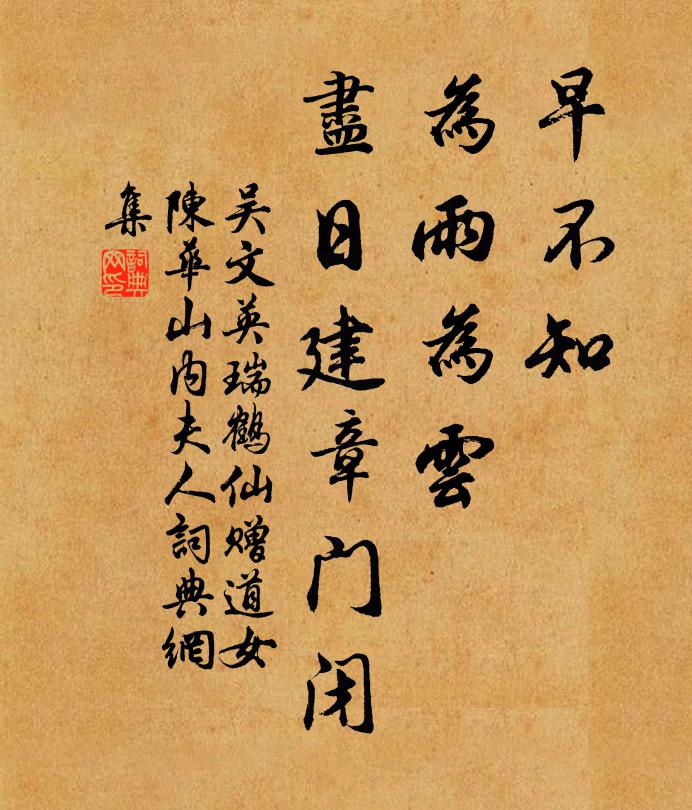 早不知
為雨為雲
盡日建章门闭
吴文英瑞鶴仙赠道女
陳華山内夫人詞典網
集
詞典网印